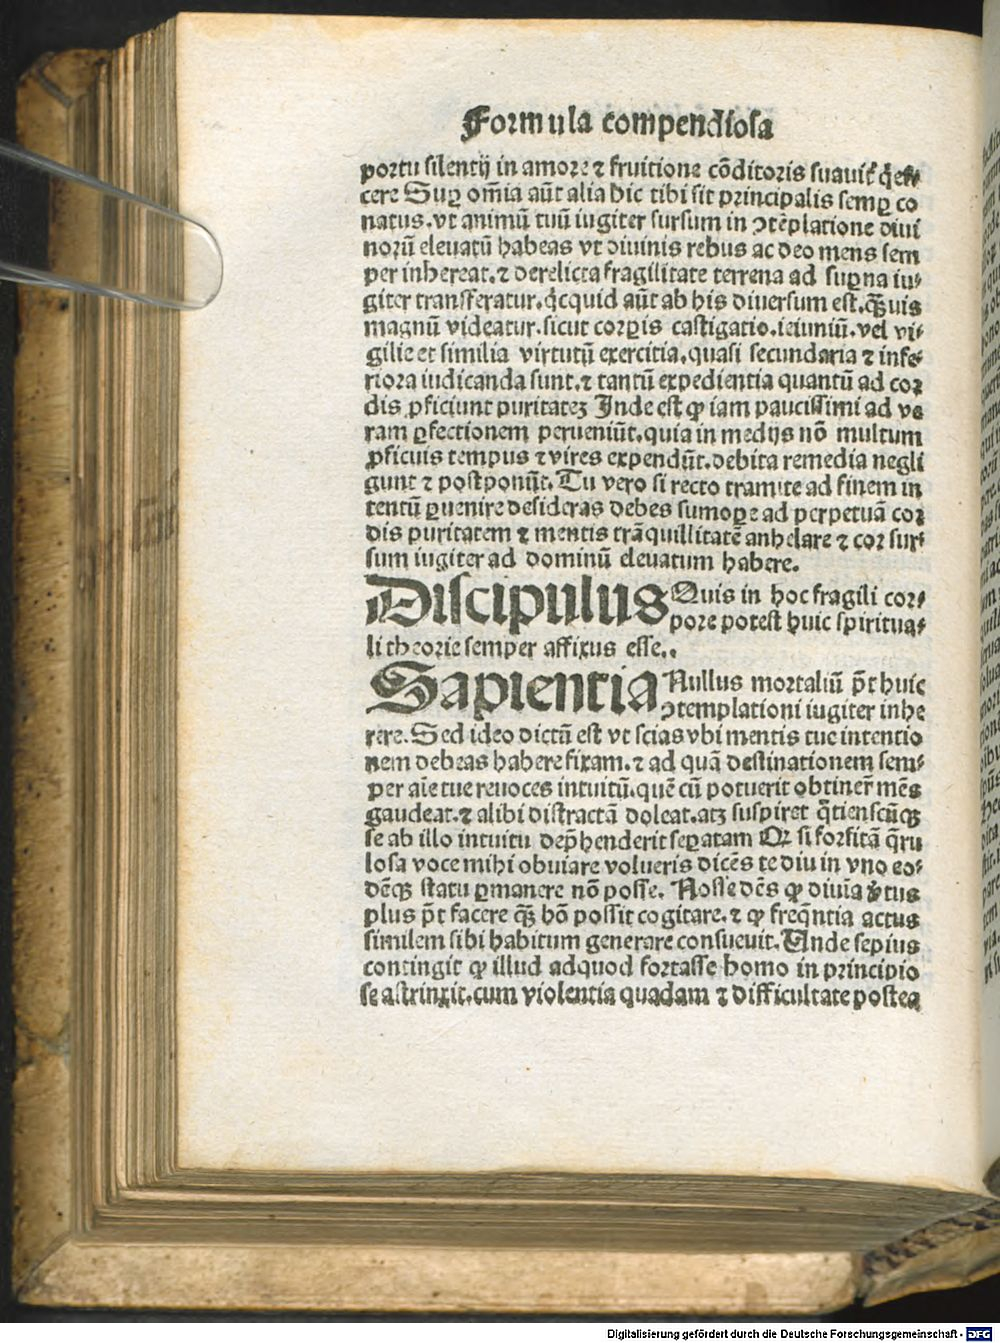 Formula compendiosa
portu silentij in amore ⁊ fruitione cōditoris suauit̉ q̇es-
cere Suꝑ om̄ia aūt alia hic tibi sit principalis semꝑ co
natus.vt animū tuū iugiter sursum in ꝯtēplatione diui
norū eleuatū habeas vt diuinis rebus ac deo mens sem
per inhereat.⁊ derelicta fragilitate terrena ad suꝑna iu-
giter transferatur.q̇cquid aūt ab his diuersum est.q̄ꝫuis
magnū videatur.sicut corꝑis castigatio.ieiuniū.vel vi-
gilie et similia virtutū exercitia.quasi secundaria ⁊ infe-
riora iudicanda sunt.⁊ tantū expedientia quantū ad cor
dis ꝓficiunt puritateꝫ Inde est ꝙ iam paucissimi ad ve
ram ꝑfectionem perueniūt.quia in medijs nō multum
ꝓficuis tempus ⁊ vires expendūt.debita remedia negli
gunt ⁊ postponūt.Tu vero si recto tramite ad finem in
tentū ꝑuenire desideras debes sumoꝑe ad perpetuā cor
dis puritatem ⁊ mentis trāquillitatē anhelare ⁊ cor sur-
sum iugiter ad dominū eleuatum habere.
Discipulus Quis in hoc fragili cor-
pore potest huic spiritua-
li theorie semper affixus esse..
Sapientia Nullus mortaliū p̄t huic
ꝯtemplationi iugiter inhe
rere.Sed ideo dictū est vt scias vbi mentis tue intentio
nem debeas habere fixam.⁊ ad quā destinationem sem-
per aīe tue reuoces intuitū.quē cū potuerit obtiner̄ mēs
gaudeat.⁊ alibi distractā doleat.atꝫ suspiret q̄tienscūqꝫ
se ab illo intuitu dep̄henderit seꝑatam Qr̄ si forsitā q̄ru
losa voce mihi obuiare volueris dicēs te diu in vno eo-
dēqꝫ statu ꝑmanere nō posse. Nosse dēs ꝙ diuīa v̇tus
plus p̄t facere q̄ꝫ hō possit cogitare.⁊ ꝙ freq̄ntia actus
similem sibi habitum generare consueuit.Unde sepius
contingit ꝙ illud adquod fortasse homo in principio
se astrinxit.cum violentia quadam ⁊ difficultate postea
Digitalisierung gefördert durch die Deutsche Forschungsgemeinschaft - DFG